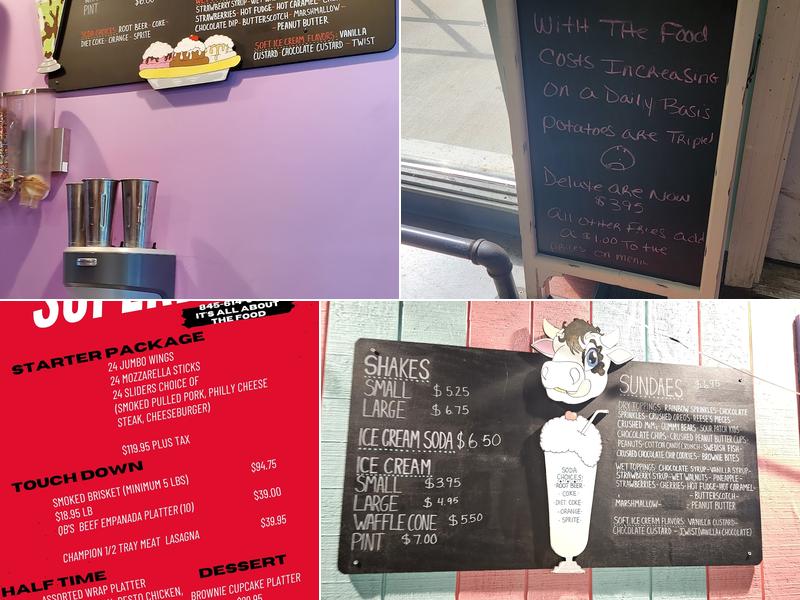 PINT
SODA CHOICES: ROOT BEER - COKE -
DIET COKE - ORANGE - SPRITE
STRAWBERRIES - HOT FUDGE - HOT CARAMEL -
CHOCOLATE DIP - BUTTERSCOTCH - MARSHMALLOW -
- PEANUT BUTTER
SOFT ICE CREAM FLAVORS: VANILLA
CUSTARD - CHOCOLATE CUSTARD - TWIST
With The Food
Costs Increasing
on a Daily Basis
potatoes are Tripled
Deluxe are Now
$3.95
all other Fries add
a $1.00 To the
prices on menu
845-614
IT'S ALL ABOUT
THE FOOD
STARTER PACKAGE
24 JUMBO WINGS
24 MOZZARELLA STICKS
24 SLIDERS CHOICE OF
(SMOKED PULLED PORK, PHILLY CHEESE
STEAK, CHEESEBURGER)
$119.95 PLUS TAX
TOUCH DOWN
SMOKED BRISKET (MINIMUM 5 LBS) $94.75
$18.95 LB
QB'S BEEF EMPANADA PLATTER (10) $39.00
CHAMPION 1/2 TRAY MEAT LASAGNA $39.95
HALF TIME
ASSORTED WRAP PLATTER
PESTO CHICKEN,
DESSERT
BROWNIE CUPCAKE PLATTER
SHAKES
SMALL $5.25
LARGE $6.75
ICE CREAM SODA $6.50
ICE CREAM
SMALL $3.95
LARGE $4.95
WAFFLE CONE $5.50
PINT $7.00
SODA
CHOICES:
ROOT BEER -
- COKE -
DIET COKE -
- ORANGE -
- SPRITE
SUNDAES $6.95
DRY TOPPINGS: RAINBOW SPRINKLES - CHOCOLATE
SPRINKLES - CRUSHED OREOS - REESE'S PIECES -
CRUSHED M&Ms - GUMMY BEARS - SOUR PATCH KIDS -
CHOCOLATE CHIPS - CRUSHED PEANUT BUTTER CUPS -
PEANUTS - COTTON CANDY CRUNCH - SWEDISH FISH -
CRUSHED CHOCOLATE CHIP COOKIES - BROWNIE BITES
WET TOPPINGS: CHOCOLATE SYRUP - VANILLA SYRUP -
STRAWBERRY SYRUP - WET WALNUTS - PINEAPPLE -
STRAWBERRIES - CHERRIES - HOT FUDGE - HOT CARAMEL -
- BUTTERSCOTCH -
MARSHMALLOW - - PEANUT BUTTER
SOFT ICE CREAM FLAVORS: VANILLA CUSTARD -
CHOCOLATE CUSTARD - TWIST (VANILLA & CHOCOLATE)